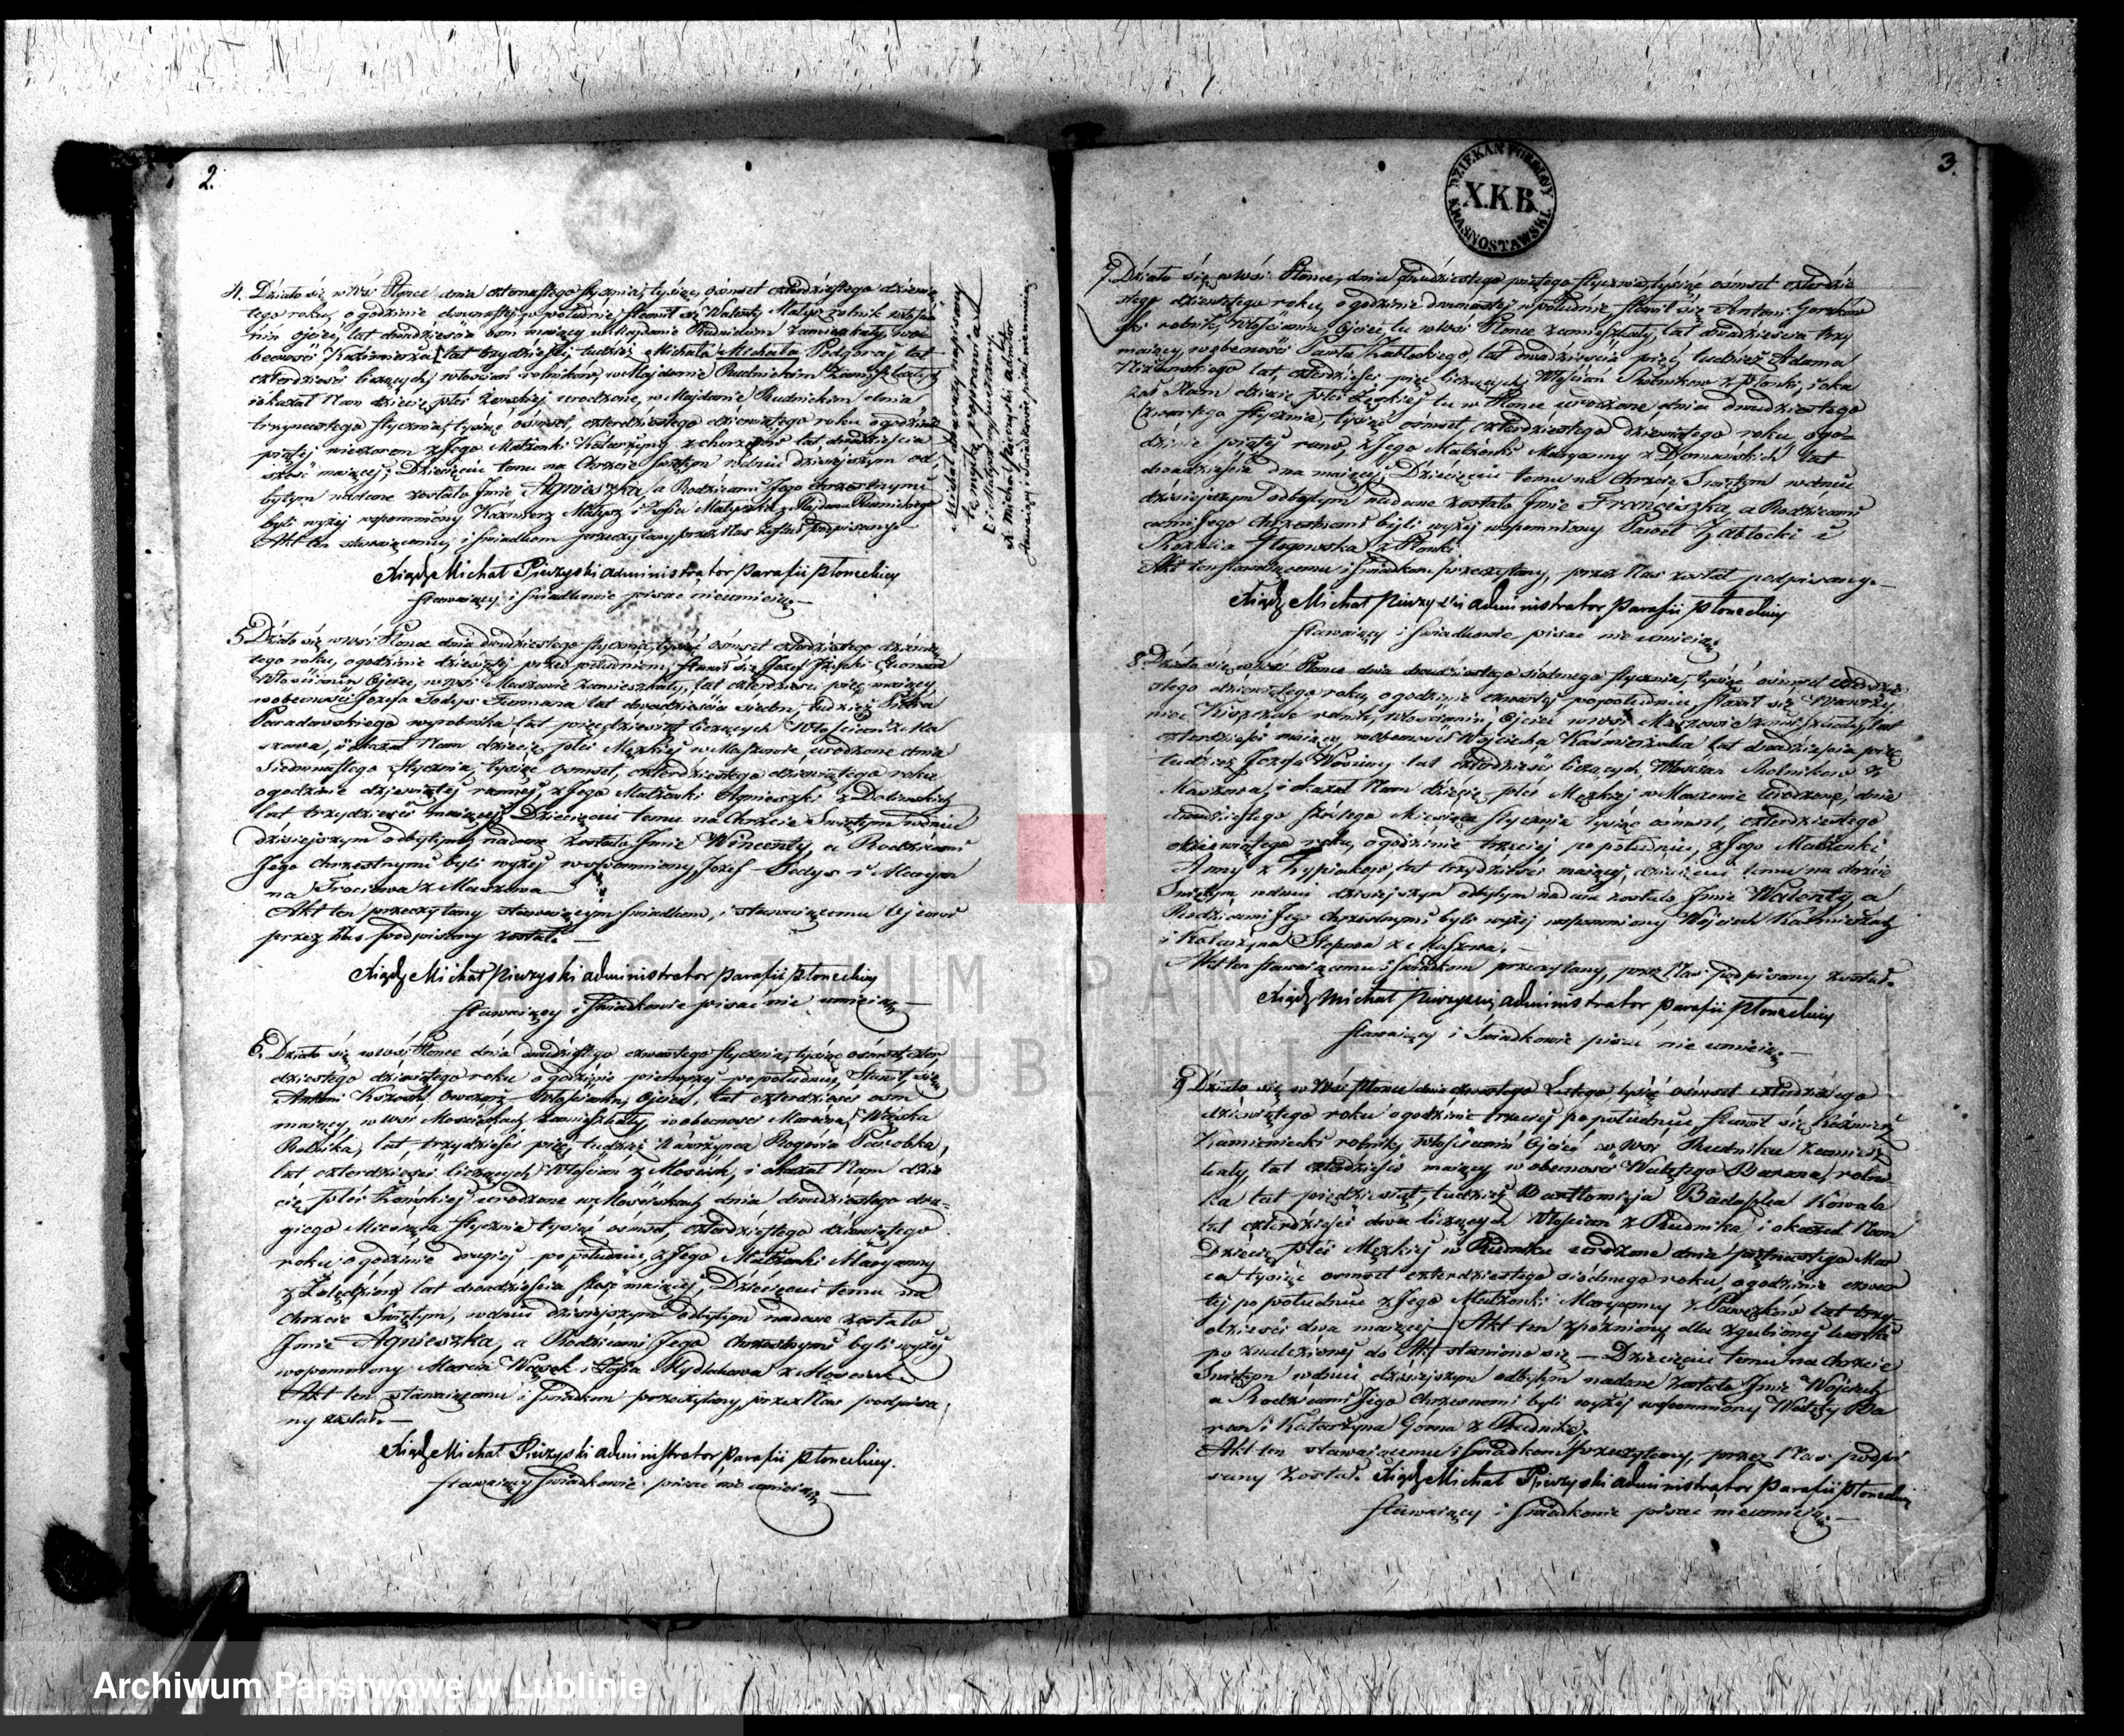 2.
4. Działo się w Wsi Płonce dnia czternastego stycznia, tysiąc, ośmset czterdziestego dziewią
tego roku, o godzinie dwunastej w południe, stawił się Walenty Małysz rolnik włościa
nin ojciec, lat dwadzieścia ośm mający w Majdanie Rudnickim zamieszkały, w o
becności Kazimierza lat trzydzieści, tudzież Michała Michała Podgoraj lat
czterdzieści liczących, włościan rolników, w Majdanie Rudnickim zamieszkałych
i okazał Nam dziecię płci żeńskiej urodzone, w Majdanie Rudnickim dnia
trzynastego stycznia, tysiąc ośmset, czterdziestego dziewiątego roku o godzinie
piątej wieczorem z Jego Małżonki Katarzyny lat dwadzieścia
sześć mającej; Dziecięciu temu na Chrzcie świętym w dniu dzisiejszym od
bytym nadane zostało Imie Agnieszka, a Rodzicami Jego chrzestnymi
byli wyżej wspomniony Kaźmierz Małysz i Zofia Małyszka z Majdanu Rudnickiego
Akt ten stawającemu, i świadkom przeczytany przez Nas został podpisany
Xiądz Michał Pieczyski administrator Parafii Płoneckiey
stawaiący i świadkowie pisać nieumieią.—
Michał dwa razy napisany
5. Działo się w wsi Płonce dnia dwudziestego stycznia, tysiąc ośmset czterdziestego dziewią
tego roku, o godzinie dziewiątej przed południem, stawił się Józef
Włościanin Ojciec, w wsi Maszowie zamieszkały, lat czterdzieści pięć mający
w obecności Józefa Sodys lat dwadzieścia siedm, tudzież Piotra
Paradowskiego wyrobnika lat pięćdziesiąt liczących Włościan z Ma
szowa, i okazał Nam dziecię płci Męzkiej w Maszowie urodzone dnia
siedmnastego stycznia, tysiąc ośmset, czterdziestego dziewiątego roku
o godzinie dziewiątej rannej, z Jego Małżonki Agnieszki z Dolinskich
lat trzydzieści mającej; Dziecięciu temu na Chrzcie Świętym w dniu
dzisiejszym odbytym, nadane zostało Imie Wincenty, a Rodzicami
Jego chrzestnymi byli wyżej wspomniony, Józef Sodys i Maryan
na Trociowa z Maszowa
Akt ten przeczytany stawającym świadkom, i stawającemu Ojcowi
przez Nas podpisany został.—
Xiądz Michał Pieczyski administrator Parafii Płoneckiey
stawaiący i świadkowie pisać nie umieią —
6. Działo się w wsi Płonce dnia dwudziestego czwartego stycznia, tysiąc ośmset, czter
dziestego dziewiątego roku o godzinie pierwszej po południu, Stawił się
Antoni Owczarz Włościanin, Ojciec, lat czterdzieści ośm
mający, w wsi Mościskach zamieszkały, w obecności Marcina Wąsika
Rolnika, lat trzydzieści pięć, tudzież Wawrzyńca Rogoria Parobka,
lat czterdzieści liczących Włościan z Mościsk, i okazał Nam dzie
cię płci Żeńskiej urodzone w Mościskach dnia dwudziestego dru
giego Miesiąca stycznia tysiąc ośmset, czterdziestego dziewiątego
roku o godzinie drugiej po południu, z Jego Małżonki Maryanny
lat dwadzieścia sześć mającej, Dziecięciu temu na
chrzcie Świętym, w dniu dzisiejszym odbytym nadane zostało
Imie Agnieszka, a Rodzicami Jego chrzestnymi byli wyżej
wspomniony Marcin Wąsek i Zofia Mydlakowa z Mościsk
Akt ten stawającemu i świadkom przeczytany, przez Nas podpisa
ny został.—
Xiądz Michał Pieczyski administrator Parafii Płoneckiey.
stawaiący świadkowie pisać nie umieią —
DZIEKAN FORALNY
X.K.B.
KRASNOSTAWSKI.
3.
7. Działo się w wsi Płonce, dnia dwudziestego piątego stycznia, tysiąc ośmset czterdzie
stego dziewiątego roku, o godzinie dwunastej w południe, stawił się Antoni Gorzkow
ski rolnik, Włościanin, Ojciec, tu w wsi Płonce zamieszkały, lat dwadzieścia trzy
mający, w obecności Pawła Zabłockiego lat dwadzieścia pięć, tudzież Adama
lat czterdzieści pięć liczących, Włościan Rolników z Płonki, i oka
zał Nam dziecię płci Żeńskiej tu w Płonce urodzone dnia dwudziestego
Czwartego stycznia, tysiąc ośmset, czterdziestego dziewiątego roku, o go
dzinie piątej rano, z Jego Małżonki Maryanny z Domańskich lat
dwadzieścia dwa mającej; Dziecięciu temu na Chrzcie Świętym w dniu
dzisiejszym odbytym nadane zostało Imie Franciszka, a Rodzicami
Jego chrzestnemi byli wyżej wspomniony Paweł Zabłocki i
Rozalia Głogowska z Płonki
Akt ten stawającemu i świadkom przeczytany, przez Nas został podpisany.—
Xiądz Michał Pieczyski administrator Parafii Płoneckiey
stawaiący i świadkowie pisać nie umieią
8. Działo się w wsi Płonce dnia dwudziestego siódmego stycznia, tysiąc ośmset czterdzie
stego dziewiątego roku, o godzinie czwartej po południu, stawił się Wawrzy
niec włościanin, Ojciec w wsi Maszowie zamieszkały, lat
czterdzieści mający w obecności Wojciecha Kaźmierczaka lat dwadzieścia pięć
tudzież Józefa Woźnicy lat czterdzieści liczących, Włościan Rolników z
Maszowa, i okazał Nam dziecię płci Męzkiej w Maszowie Urodzone, dnia
dwudziestego szóstego Miesiąca stycznia tysiąc ośmset, czterdziestego
dziewiątego roku, o godzinie trzeciej po południu, z Jego Małżonki
Anny z lat trzydzieści mającej, dziecięciu temu na chrzcie
Świętym w dniu dzisiejszym odbytym nadane zostało Imie Walenty, a
Rodzicami Jego chrzestnymi byli wyżej wspomniony Wojciech Kaźmierczak
i Katarzyna z Maszowa.—
Akt ten stawającemu i świadkom przeczytany, przez Nas podpisany został.
Xiądz Michał Pieczyski administrator Parafii Płoneckiey
stawaiący i Świadkowie pisać nie umieią.—
9. Działo się w Wsi Płonce dnia czwartego Lutego tysiąc ośmset czterdziestego
dziewiątego roku o godzinie trzeciej po południu stawił się Kaźmierz
Kamieniecki rolnik, włościanin Ojciec w wsi Rudniku zamiesz
kały, lat czterdzieści mający w obecności Walętego Barana, rolni
ka lat pięćdziesiąt, tudzież Bartłomieja Kowala
lat czterdzieści dwa liczących Włościan z Rudnika i okazał Nam
Dziecię płci Męzkiej w Rudniku urodzone dnia piętnastego Mar
ca tysiąc ośmset czterdziestego siódmego roku, o godzinie czwar
tej po południu z Jego Małżonki Maryanny z Pawęzków lat trzy
dzieści dwa mającej — Akt ten spóźniony dla zgubionej kartki
po znalezionej do Akt stawiono się — Dziecięciu temu na Chrzcie
Świętym w dniu dzisiejszym odbytym nadane zostało Imie Wojciech
a Rodzicami Jego chrzesnemi byli wyżej wspomniony Walęty Ba
ran i Katarzyna Gorna z Rudnika.
Akt ten stawającemu i świadkom przeczytany, przez Nas podpi
sany został. Xiądz Michał Pieczyski administrator Parafii Płoneckiey
stawaiący i świadkowie pisać nieumieią.—
ARCHIWUM PAŃSTWOWE
W LUBLINIE
Archiwum Państwowe w Lublinie